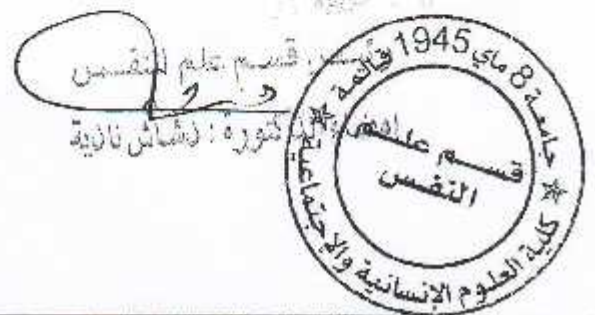 قسم علم النفس
الدكتورة : دشاش نادية
جامعة 8 ماي 1945 قالمة
كلية العلوم الإنسانية والاجتماعية
قسم علم
النفس